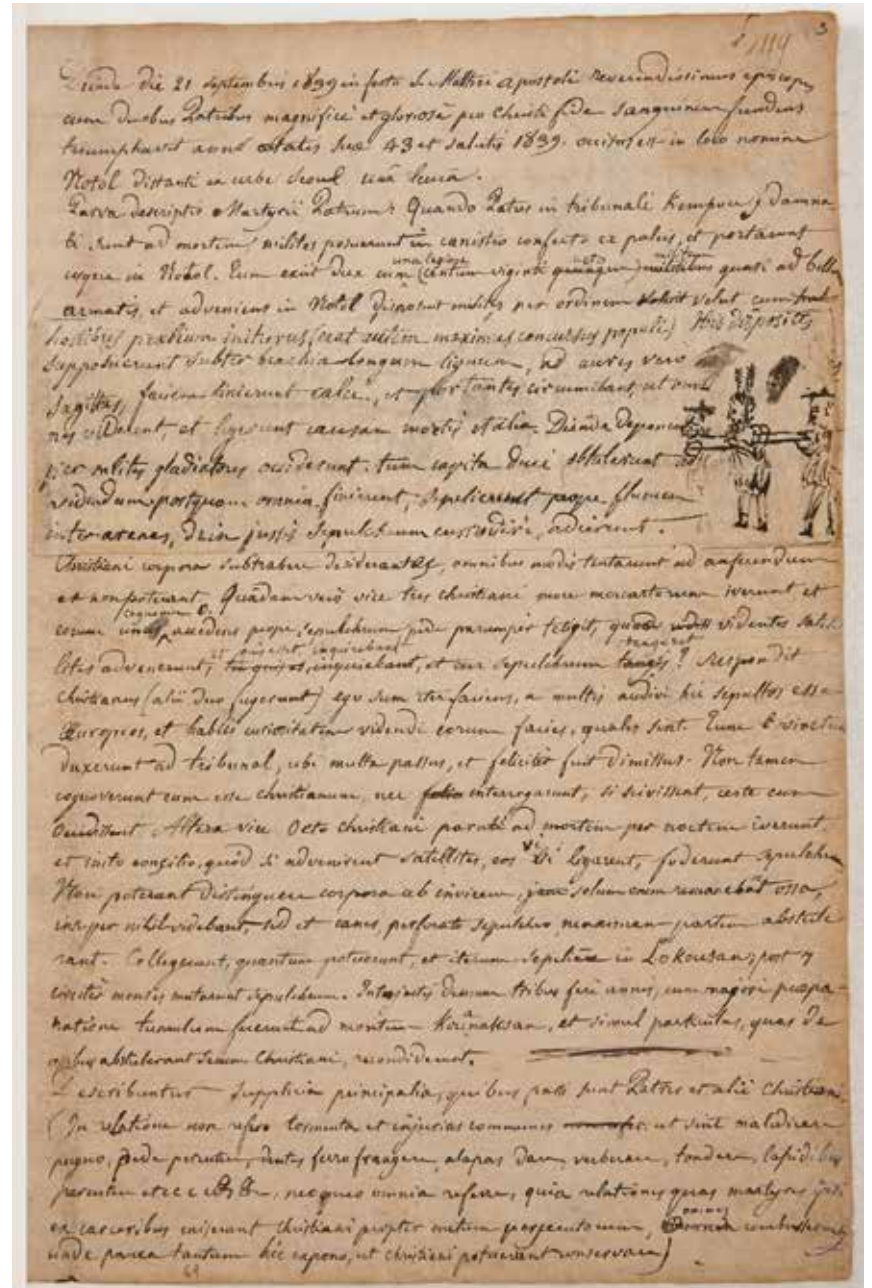 3
1119
Deinde die 21 septembris 1839 in festo S. Matthei apostoli Reverendissimus episcopus
cum duobus Patribus magnificè et gloriosè pro Christi fide sanguinem fundens
triumphavit anno aetatis suae 43 et salutis 1839. occisus est in loco nomine
Notol distanti ex urbe Seoul unâ leucâ.
Parva descriptio Martyrii Patrum: Quando Patres in tribunali Kempou damna-
ti sunt ad mortem milites posuerunt in canistro confecto ex paleis, et portarunt
in Notol. Tum exiit dux cum (centum viginti quinque) militibus quasi ad bellum
una legione
armatis, et adveniens in Notol disposuit milites per ordinem velut cum
hostibus praelium initurus (erat autem maximus concursus populi) His dispositis
supposuerunt subter brachia longum lignum, ad aures vero
sagittas, faciem linierunt calce, et portantes circumibant, ut om-
nes viderent, et legerunt causam mortis et alia. Deinde
per milites gladiatores occiderunt. tum capita duci obtulerunt ad
videndum postquam omnia finirent, sepelierunt prope flumen
inter arenas, dein jussis sepulchrum custodire, adierunt.
Christiani corpora subtrahere desiderantes, omnibus modis tentarunt ad auferendum
et non poterant. Quâdam verò vice tres christiani more mercatorum iverunt et
eorum unus, accedens prope sepulchrum pede parumper tetigit, quod videntes satel-
tangeret
lites advenerunt, inquirebant, et cur sepulchrum tangis? Respondit
christianus (alii duo fugerunt) ego sum iter faciens, a multis audivi hic sepultos esse
Europeos, et habui curiositatem videndi eorum facies, quales sint. Tunc vinctum
duxerunt ad tribunal, ubi multa passus, et feliciter fuit dimissus. Non tamen
cognoverunt eum esse christianum, nec interrogarunt, si scivissent, certe eum
occidissent. Altera vice Octo christiani parati ad mortem per noctem iverunt.
et inito consilio, quòd si advenirent satellites, eos vi ligarent, foderunt sepulchrum
Non poterant distinguere corpora ab invicem, solum enim remanebat ossa,
insuper nihil videbant, sed et canes perforato sepulchro, maximam partem abstule
rant. Collegerunt, quantum potuerunt, et iterum sepeliere in Lokousan, post
circiter menses mutarunt sepulchrum. Interjectis demum tribus ferè annis, cum majori praepa-
ratione tumulum fecerunt ad montem Kouinaksan, et simul particulas, quas de
abstulerant secum Christiani, recondiderunt.
Describuntur supplicia principalia, quibus passi sunt Patres et alii christiani
(In relatione non refero tormenta et injurias communes ut sint maledicere
pugno, pede percutere, dentes ferro frangere, alapas dare, verberare, tondere, lapidibus
percutere etc, nec queo omnia referre, quia relationes quas martyres ipsi
ex carceribus miserant christiani propter metum persecutorum, omnes
unde pauca tantum hic expono, ut christiani potuerunt conservare)